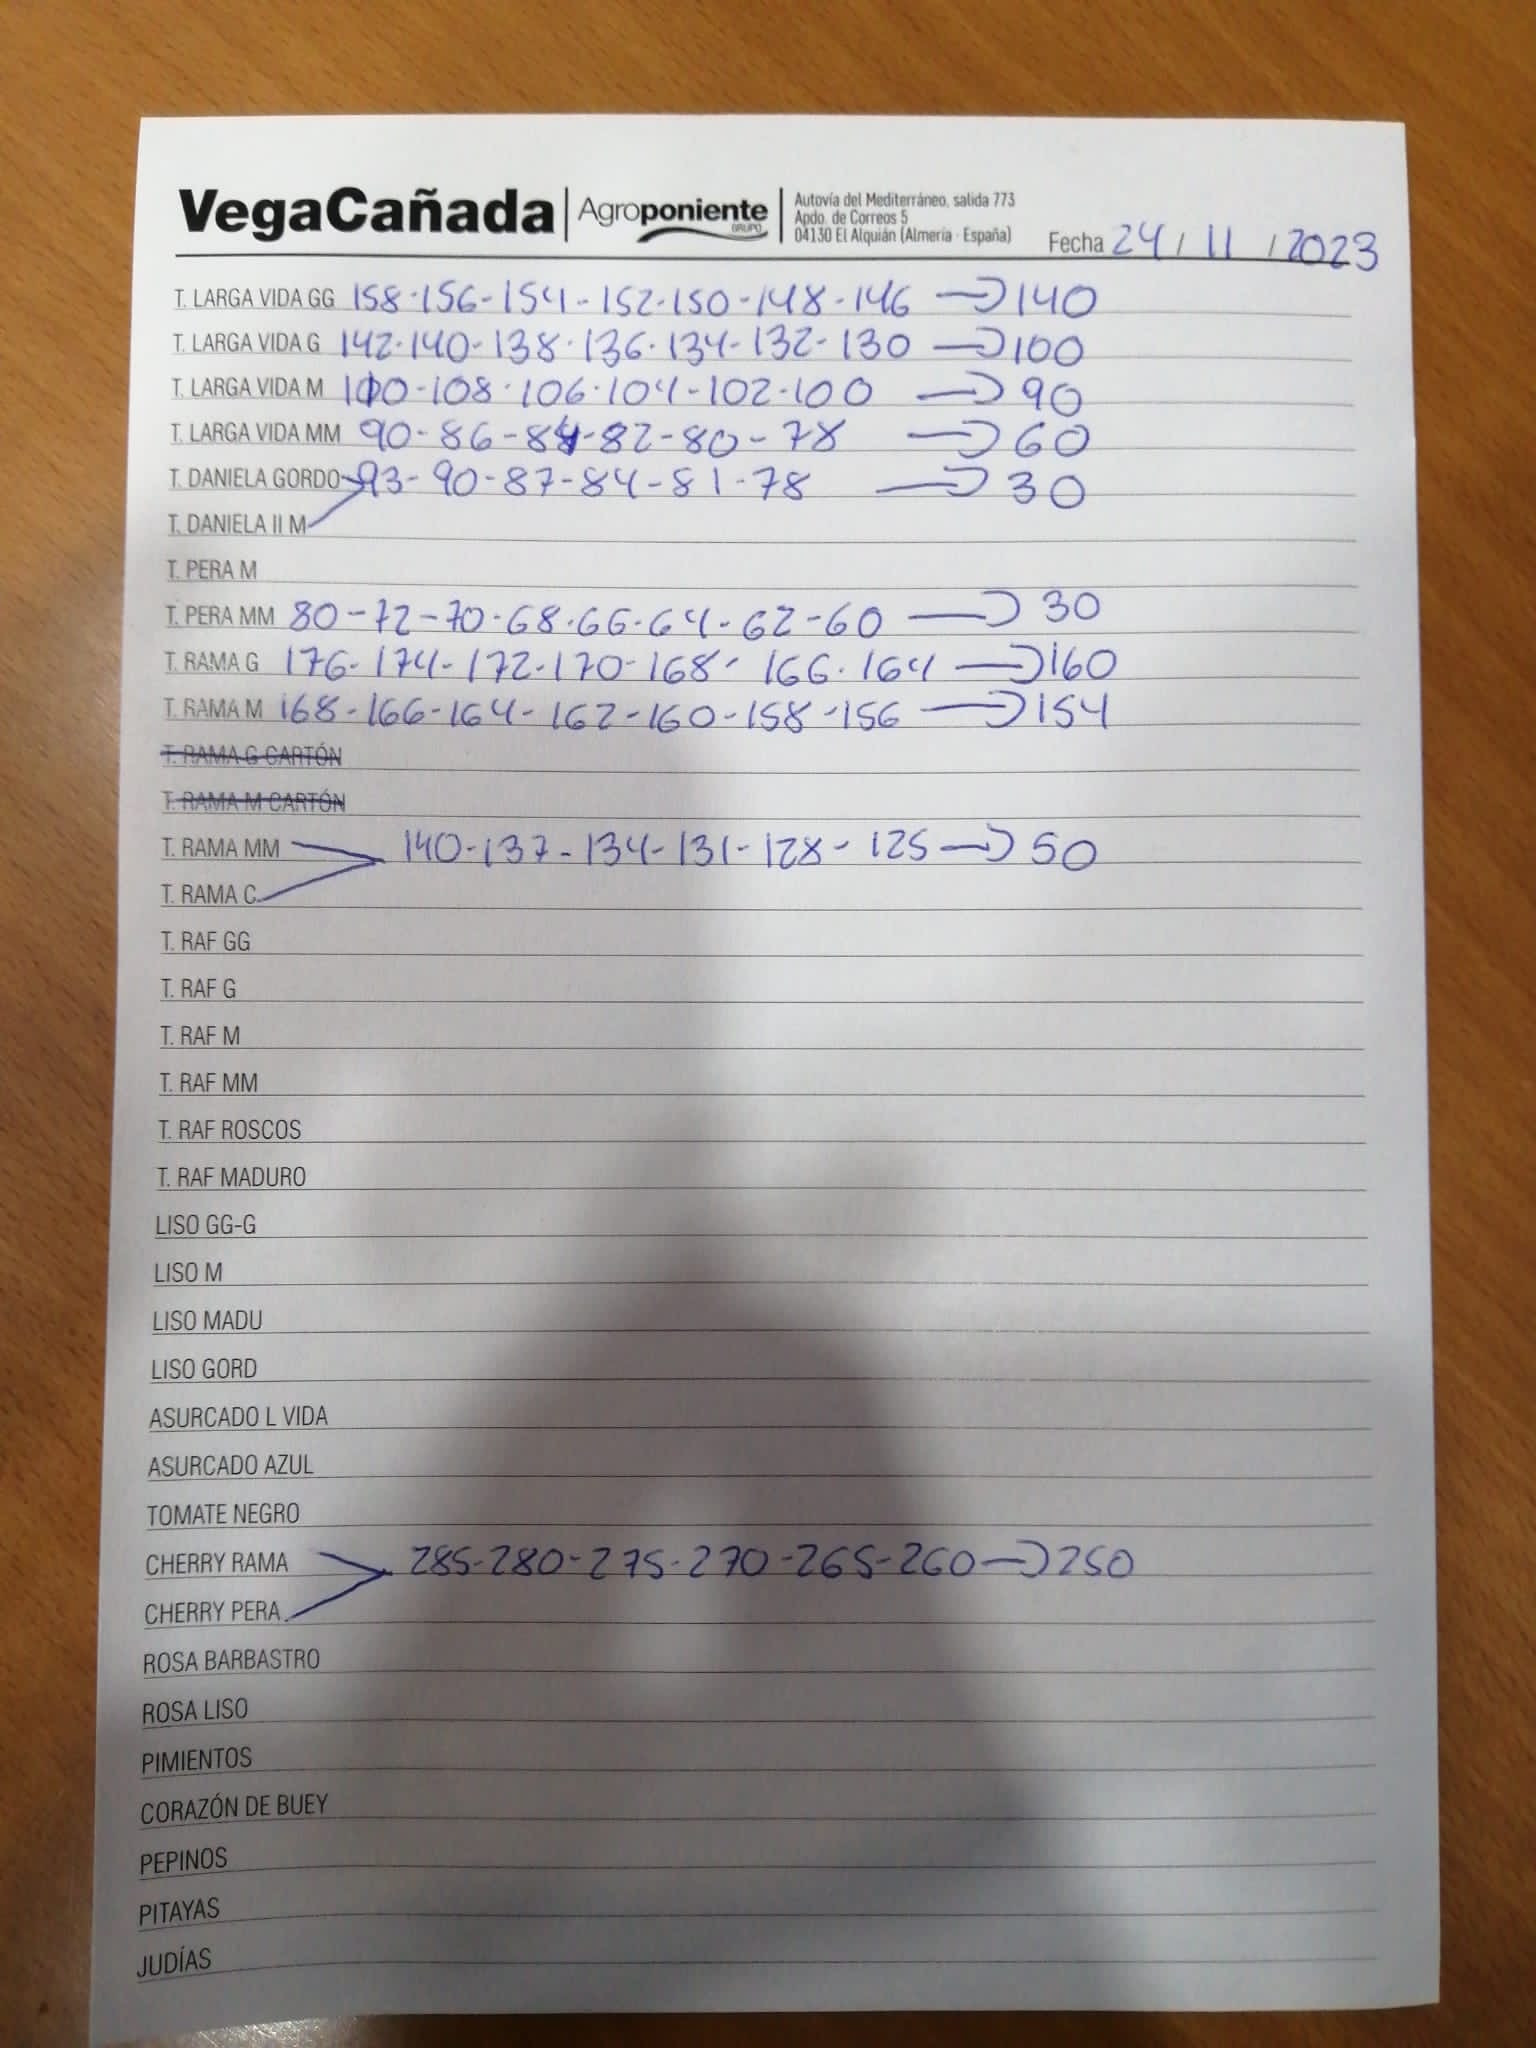 VegaCañada | Agroponiente GRUPO
Autovía del Mediterráneo, salida 773
Apdo. de Correos 5
04130 El Alquián (Almería - España)
Fecha 24 / 11 / 2023
T. LARGA VIDA GG 158-156-154-152-150-148-146 → 140
T. LARGA VIDA G 142-140-138-136-134-132-130 → 100
T. LARGA VIDA M 110-108-106-104-102-100 → 90
T. LARGA VIDA MM 90-86-84-82-80-78 → 60
T. DANIELA GORDO 93-90-87-84-81-78 → 30
T. DANIELA II M
T. PERA M
T. PERA MM 80-72-70-68-66-64-62-60 → 30
T. RAMA G 176-174-172-170-168-166-164 → 160
T. RAMA M 168-166-164-162-160-158-156 → 154
T. RAMA G CARTÓN
T. RAMA M CARTÓN
T. RAMA MM 140-137-134-131-128-125 → 50
T. RAMA C
T. RAF GG
T. RAF G
T. RAF M
T. RAF MM
T. RAF ROSCOS
T. RAF MADURO
LISO GG-G
LISO M
LISO MADU
LISO GORD
ASURCADO L VIDA
ASURCADO AZUL
TOMATE NEGRO
CHERRY RAMA 285-280-275-270-265-260 → 250
CHERRY PERA
ROSA BARBASTRO
ROSA LISO
PIMIENTOS
CORAZÓN DE BUEY
PEPINOS
PITAYAS
JUDÍAS